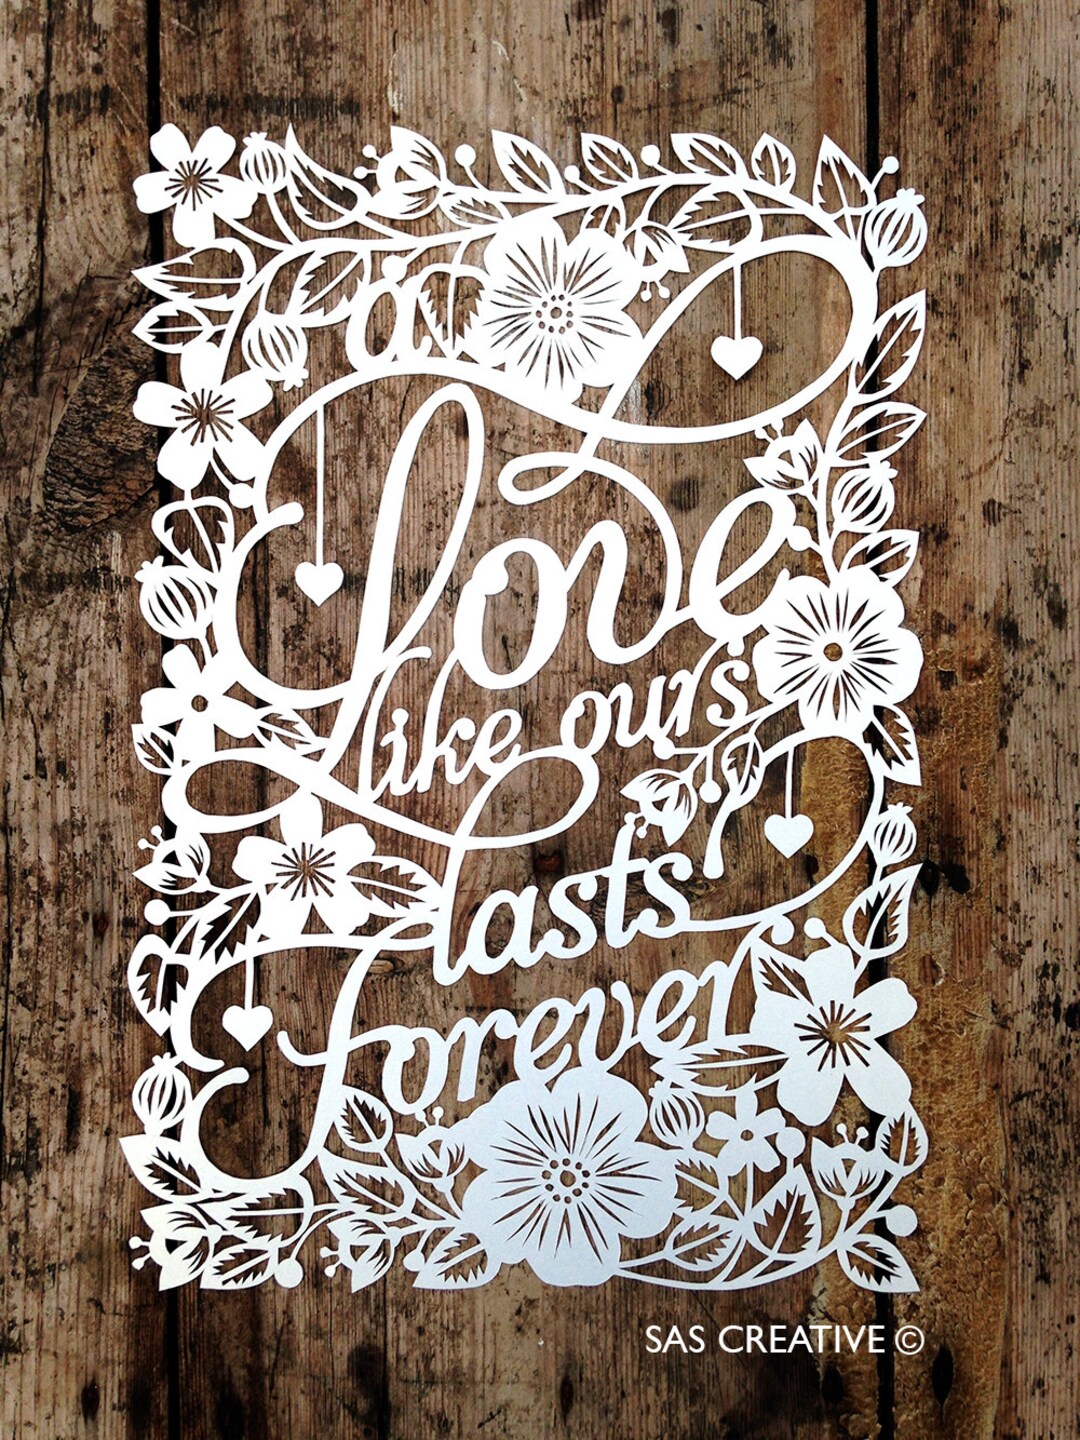 a
love
like ours
lasts
Forever
SAS CREATIVE ©